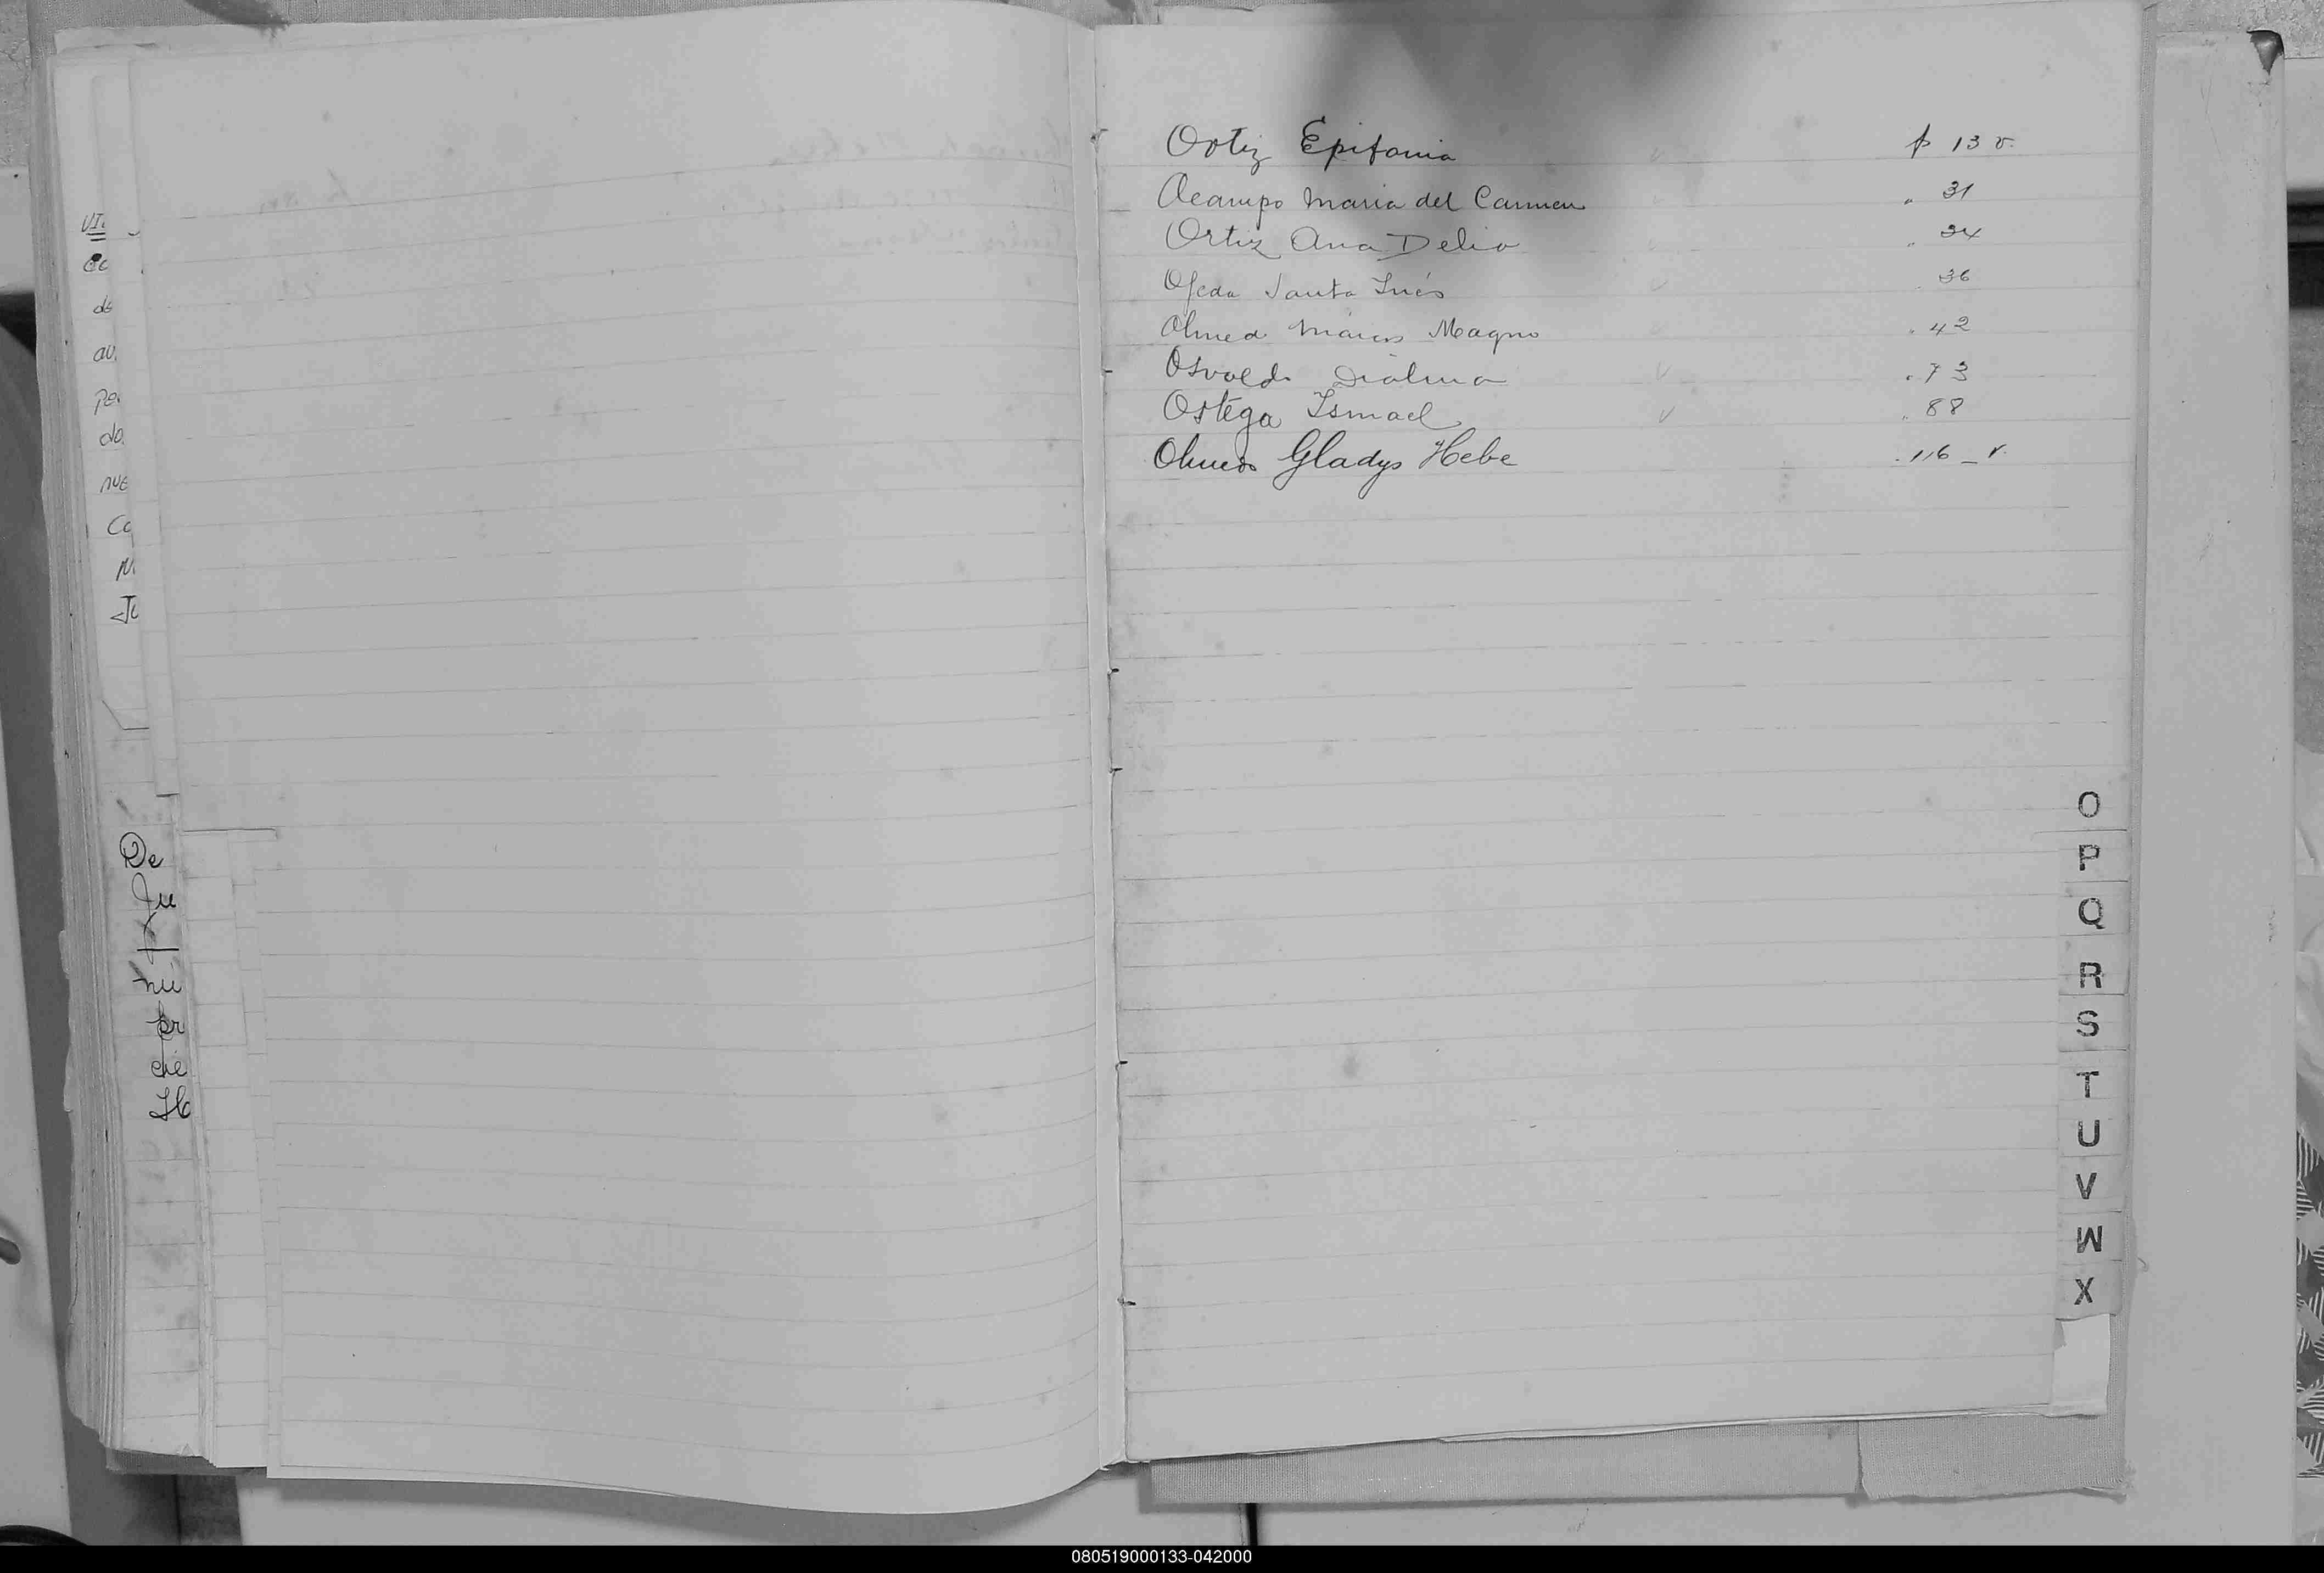 VI
de
au
pe
do
nue
Co
De
Ju
nú
cié
Ortiz Epifania p 13 v.
Ocampo Maria del Carmen " 31
Ortiz Ana Delia " 34
Ojeda Santa Inés " 36
Olmedo Marcos Magno " 42
Osvaldo Dialma " 73
Ortega Ismael " 88
Olmedo Gladys Hebe " 116 _ v.
O
P
Q
R
S
T
U
V
W
X
080519000133-042000